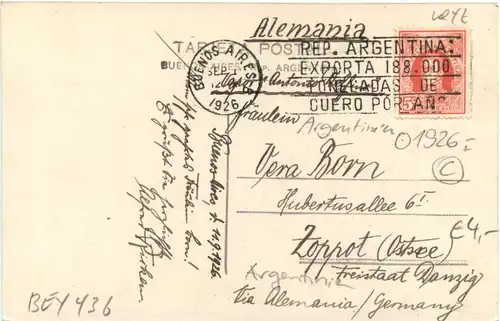 Alemania
TARJETA POSTAL
BUENOS AIRES
SEPT
1926
REP. ARGENTINA:
EXPORTA 188.000
TONELADAS DE
CUERO POR AÑO
5
Fräulein
Argentinien
1926
C
Vera Born
Hubertusallee 6 I
€4,-
Zoppot (Ostsee)
Argentinien
Freistaat Danzig
Via Alemania / Germany
Buenos Aires, d. 11.9.1926.
Sehr geehrtes Fräulein Born!
Es grüßt Sie
BEY 436